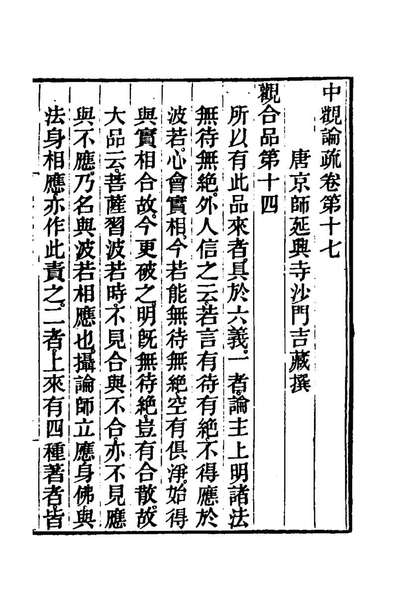 中觀論疏卷第十七
唐京師延興寺沙門吉藏撰
觀合品第十四
所以有此品來者具於六義。一者論主上明諸法
無待無絕。外人信之云。若言有待有絕。不得應於
波若。心會實相。今若能無待無絕。空有俱淨。始得
與實相合。故今更破之。明旣無待絕。豈有合散。故
大品云。菩薩習波若時。不見合與不合。亦不見應
與不應。乃名與波若相應也。攝論師立應身佛與
法身相應。亦作此責之。二者。上來有四種著者。皆